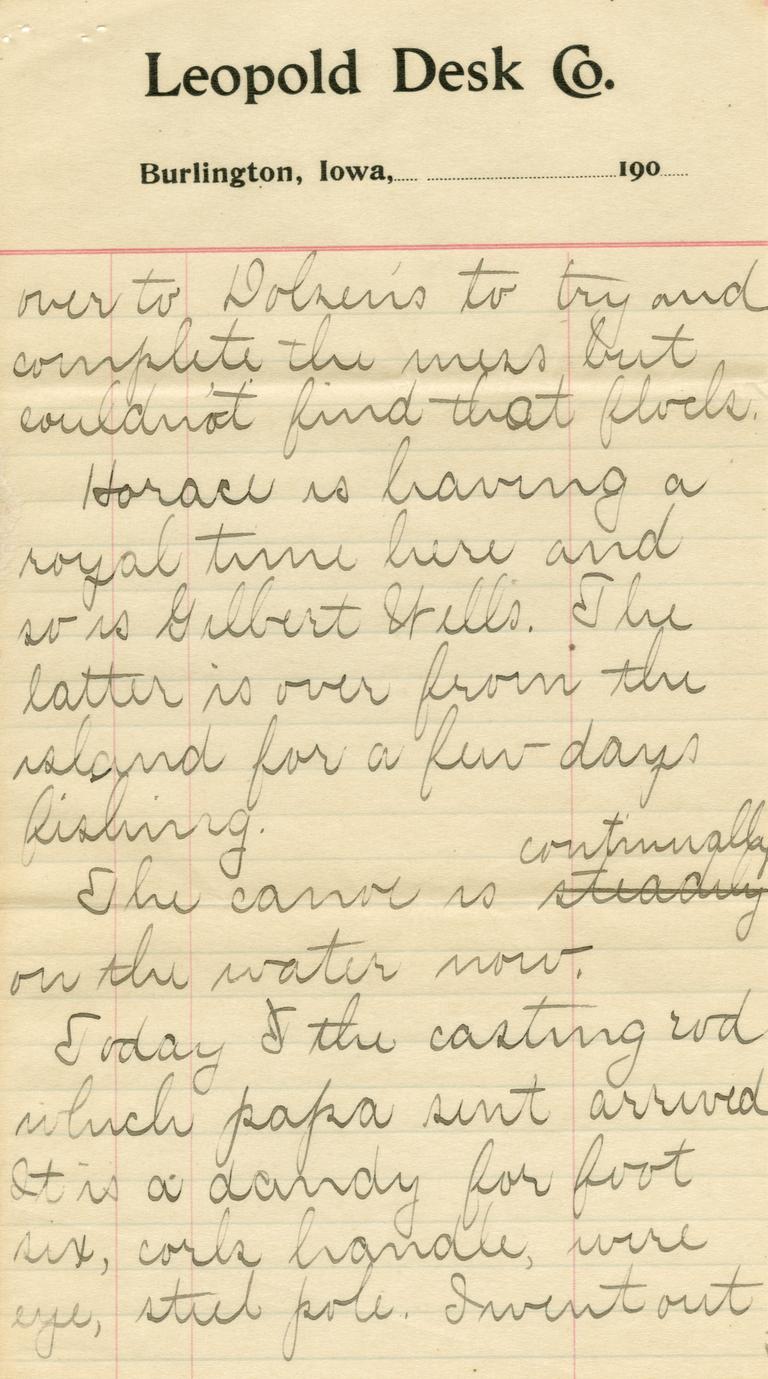 Leopold Desk Co.
Burlington, Iowa, 190
over to Dolsen's to try and
complete the mess but
couldn't find that flock.
Horace is having a
royal time here and
so is Gilbert Wells. The
latter is over from the
island for a few days
fishing.
continually
The canoe is steadily
on the water now.
Today I the casting rod
which papa sent arrived
It is a dandy for foot
six, cork handle, wire
eye, steel pole. I went out